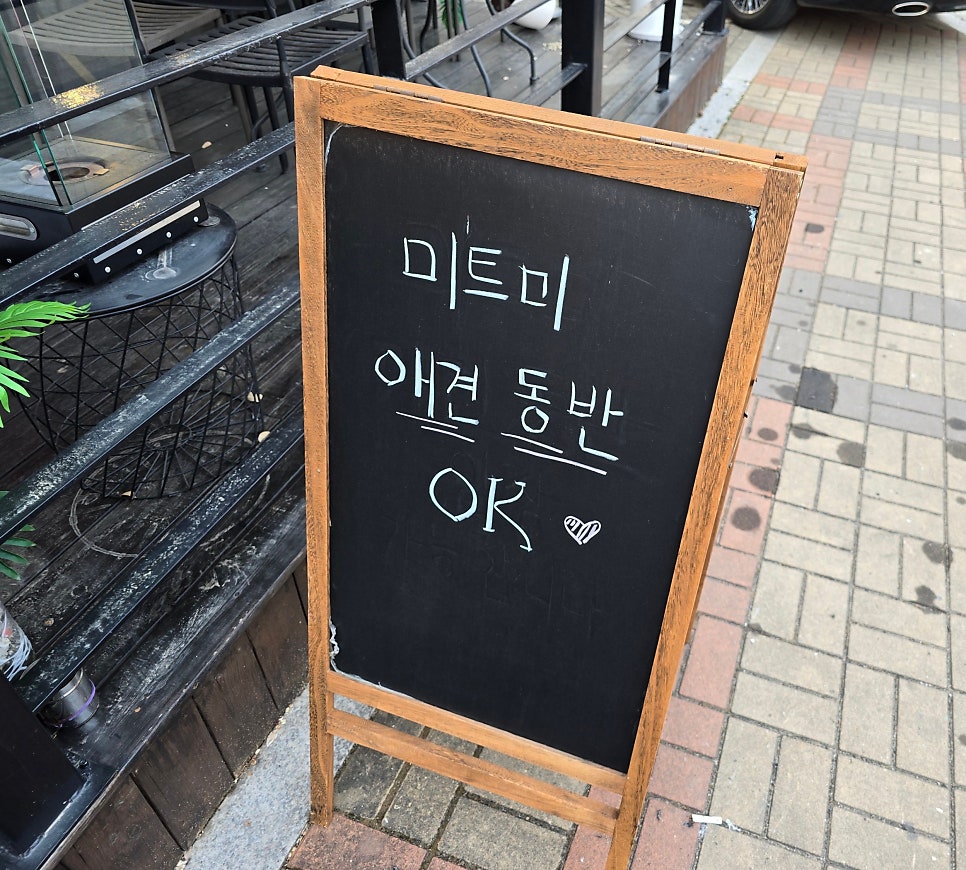 미트미
애견 동반
OK